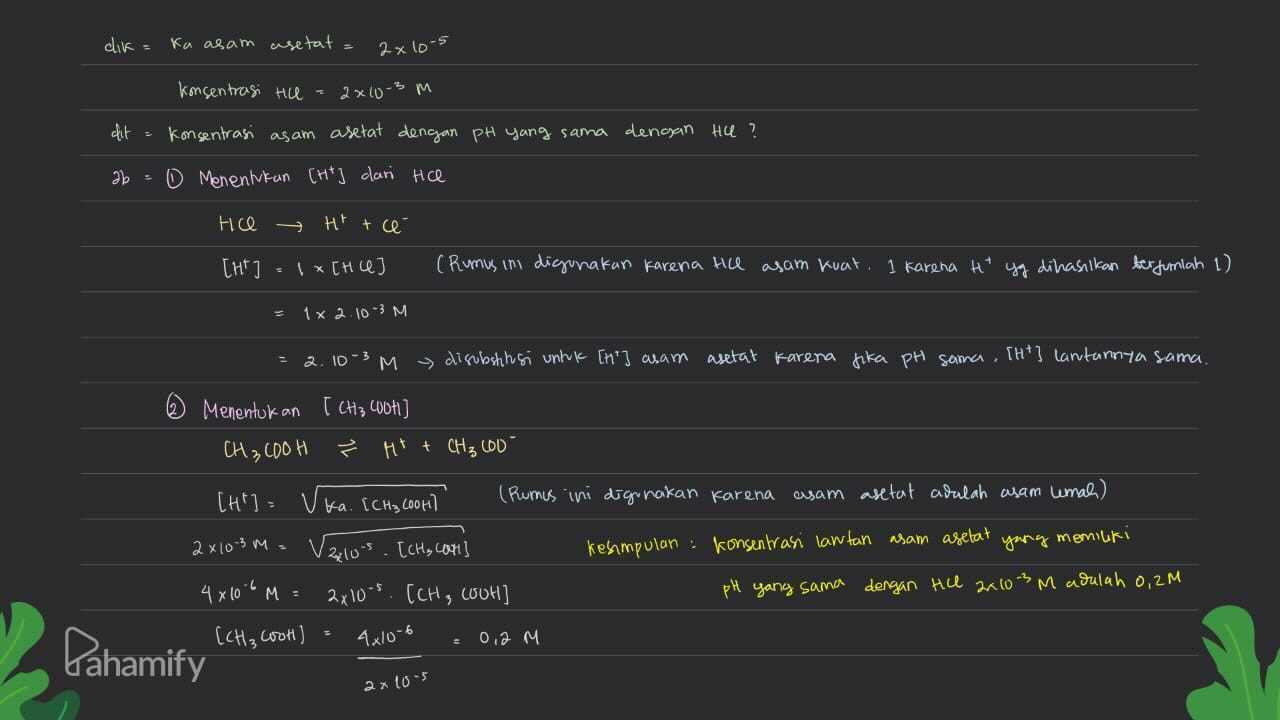 dik = Ka asam asetat = 2 x 10⁻⁵
konsentrasi HCl = 2 x 10⁻³ M
dit = Konsentrasi asam asetat dengan pH yang sama dengan HCl ?
Jb = ① Menentukan [H⁺] dari HCl
HCl → H⁺ + Cl⁻
[H⁺] = 1 x [HCl] (Rumus ini digunakan karena HCl asam kuat. 1 karena H⁺ yg dihasilkan berjumlah 1)
= 1 x 2.10⁻³ M
= 2. 10⁻³ M → disubstitusi untuk [H⁺] asam asetat karena jika pH sama, [H⁺] larutannya sama.
② Menentukan [CH₃COOH]
CH₃COOH ⇌ H⁺ + CH₃COO⁻
[H⁺] = √Ka. [CH₃COOH] (Rumus ini digunakan karena asam asetat adalah asam lemah)
2 x 10⁻³ M = √2x10⁻⁵ . [CH₃COOH] Kesimpulan : konsentrasi larutan asam asetat yang memiliki
4 x 10⁻⁶ M = 2x10⁻⁵. [CH₃COOH] pH yang sama dengan HCl 2x10⁻³ M adalah 0,2 M
[CH₃COOH] = 4x10⁻⁶ = 0,2 M
2x10⁻⁵
Pahamify